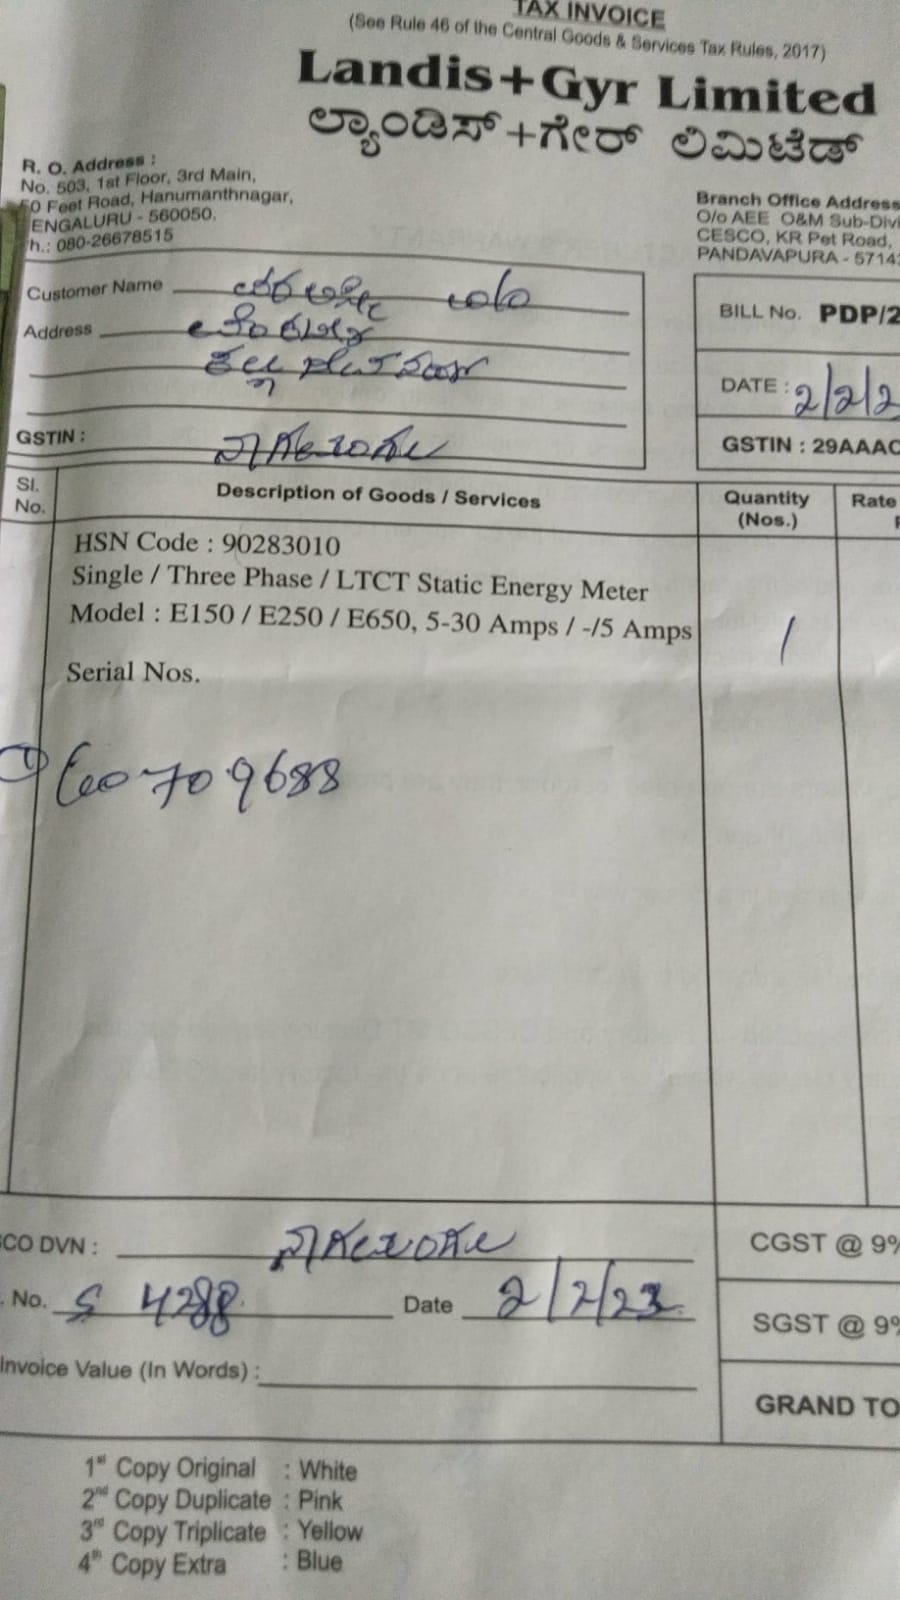 TAX INVOICE
(See Rule 46 of the Central Goods & Services Tax Rules, 2017)
Landis+Gyr Limited
ಲ್ಯಾಂಡಿಸ್+ಗೇರ್ ಲಿಮಿಟೆಡ್
R. O. Address :
No. 503, 1st Floor, 3rd Main,
50 Feet Road, Hanumanthnagar,
ENGALURU - 560050.
h.: 080-26678515
Branch Office Address
O/o AEE O&M Sub-Divi
CESCO, KR Pet Road,
PANDAVAPURA - 5714
Customer Name
Address
GSTIN :
BILL No. PDP/2
DATE : 2/2/2
GSTIN : 29AAAC
Sl. No. Description of Goods / Services Quantity (Nos.) Rate
HSN Code : 90283010
Single / Three Phase / LTCT Static Energy Meter
Model : E150 / E250 / E650, 5-30 Amps / -/5 Amps 1
Serial Nos.
709688
CO DVN :
CGST @ 9%
. No. S 4288 Date 2/2/23
SGST @ 9%
Invoice Value (In Words) :
GRAND TO
1st Copy Original : White
2nd Copy Duplicate : Pink
3rd Copy Triplicate : Yellow
4th Copy Extra : Blue